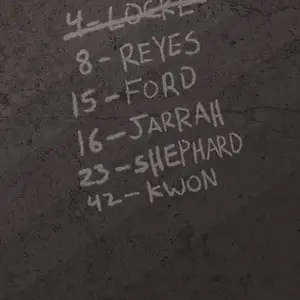 4-LOCKE
8-REYES
15-FORD
16-JARRAH
23-SHEPHARD
42-KWON